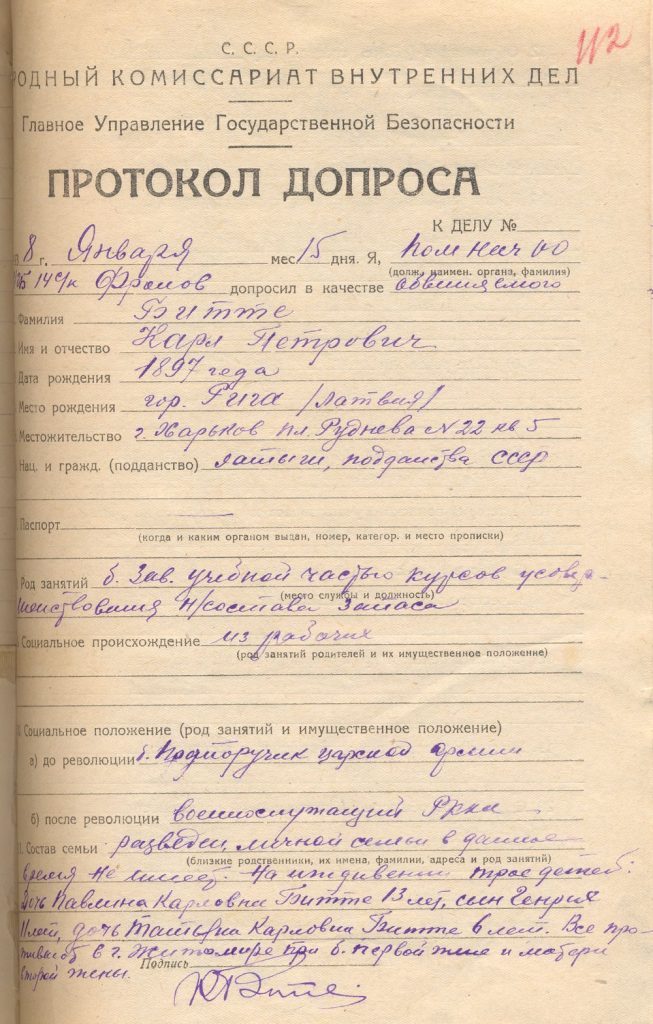 112
С. С. С. Р.
РОДНЫЙ КОМИССАРИАТ ВНУТРЕННИХ ДЕЛ
Главное Управление Государственной Безопасности
ПРОТОКОЛ ДОПРОСА
К ДЕЛУ №
8 г. Января мес 15 дня. Я, Пом нач
(долж., наимен. органа, фамилия)
14 с/к Фролов допросил в качестве обвиняемого
Фамилия Битте
Имя и отчество Карл Петрович
Дата рождения 1897 года
Место рождения гор. Рига /Латвия/
Местожительство г. Харьков пл. Руднева № 22 кв 5
Нац. и гражд. (подданство) латыш, подданства СССР
Паспорт
(когда и каким органом выдан, номер, категор. и место прописки)
Род занятий б. Зав. учебной частью курсов усовер-
(место службы и должность)
шенствования н/состава Запаса
Социальное происхождение из рабочих
(род занятий родителей и их имущественное положение)
Социальное положение (род занятий и имущественное положение)
а) до революции б. Подпоручик царской армии
б) после революции военнослужащий Ркка
Состав семьи разведен, личной семьи в данное
(близкие родственники, их имена, фамилии, адреса и род занятий)
время не имеет. На иждивении трое детей:
дочь Павлина Карловна Битте 13 лет, сын Генрих
11 лет, дочь Татьяна Карловна Битте 6 лет. Все про-
живают в г. Житомире при б. первой жене и матери
второй жены. Подпись
КБитте